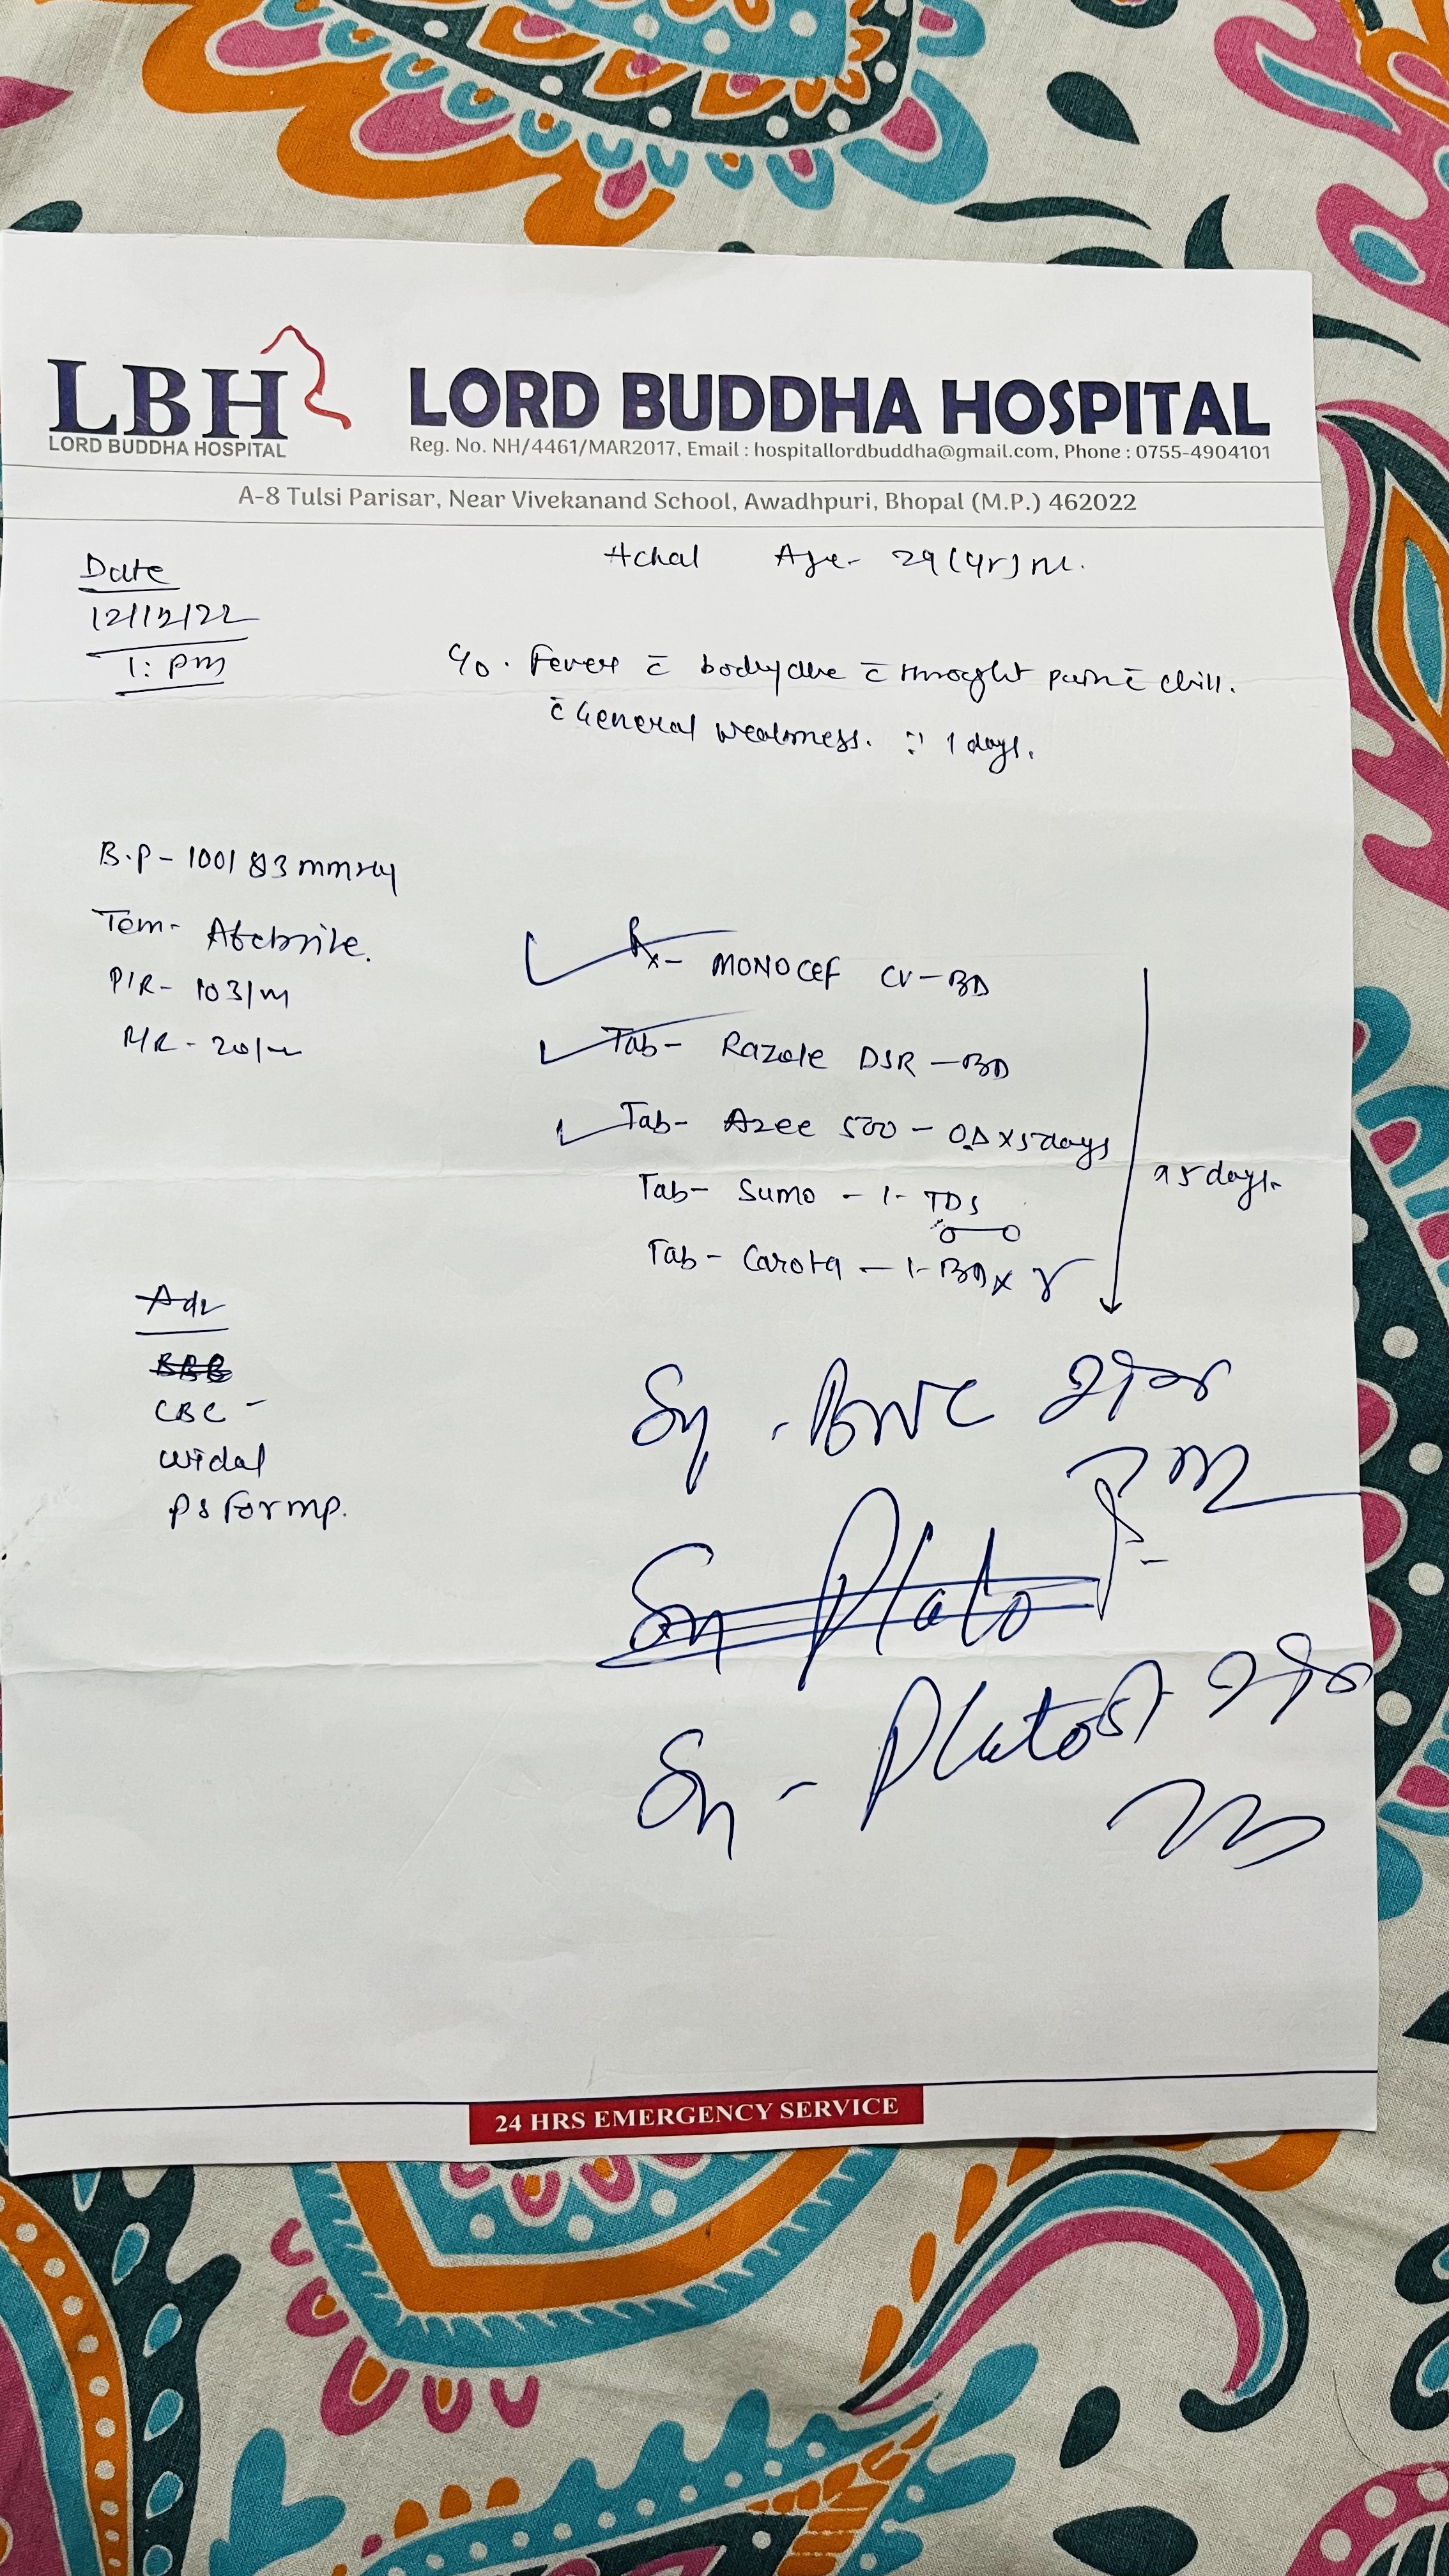 LBH
LORD BUDDHA HOSPITAL
LORD BUDDHA HOSPITAL
Reg. No. NH/4461/MAR2017, Email : hospitallordbuddha@gmail.com, Phone : 0755-4904101
A-8 Tulsi Parisar, Near Vivekanand School, Awadhpuri, Bhopal (M.P.) 462022
Achal Age- 29(Yr) M.
Date
12/12/22
1: pm
C/o. Fever c̄ bodyache c̄ throght pain c̄ chill.
c̄ General weakness. 1 days.
B.P - 100/83 mmHg
Tem- Afebrile.
P/R- 103/m
R/R - 20/m
Rx- MONOCEF CV - BD
Tab- Razole DSR - BD
Tab- Azee 500 - OD x 5 days
x 5 days
Tab- Sumo - 1- TDS
Tab- Carota - 1- BD x
Adv
CBC -
widal
PS For mp.
Sy -
Sy Plato
Sy -
24 HRS EMERGENCY SERVICE